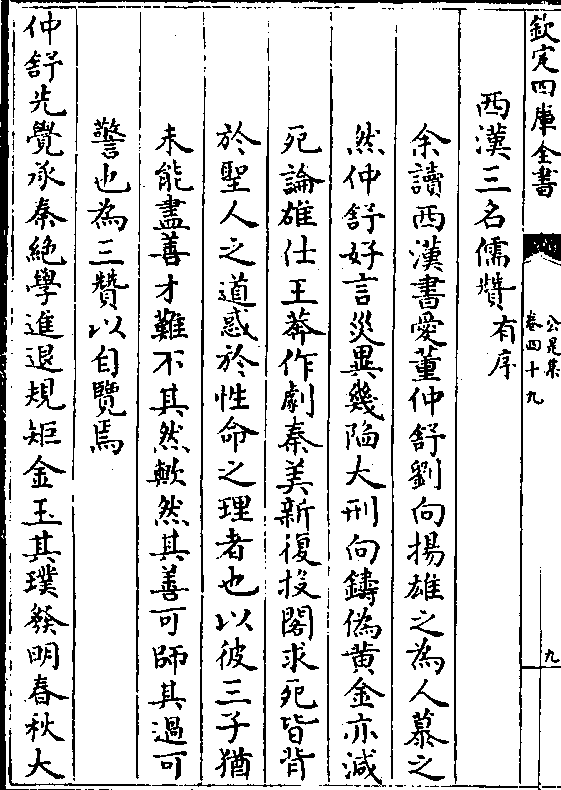 欽定四庫全書
公是集
卷四十九
九
西漢三名儒贊有序
余讀西漢書愛董仲舒劉向揚雄之為人慕之
然仲舒好言災異幾陷大刑向鑄偽黄金亦減
死論雄仕王莽作劇秦美新復投閣求死皆背
於聖人之道惑於性命之理者也以彼三子猶
未能盡善才難不其然歟然其善可師其過可
警也為三贊以自覽焉
仲舒先覺承秦絶學進退規矩金玉其璞發明春秋大